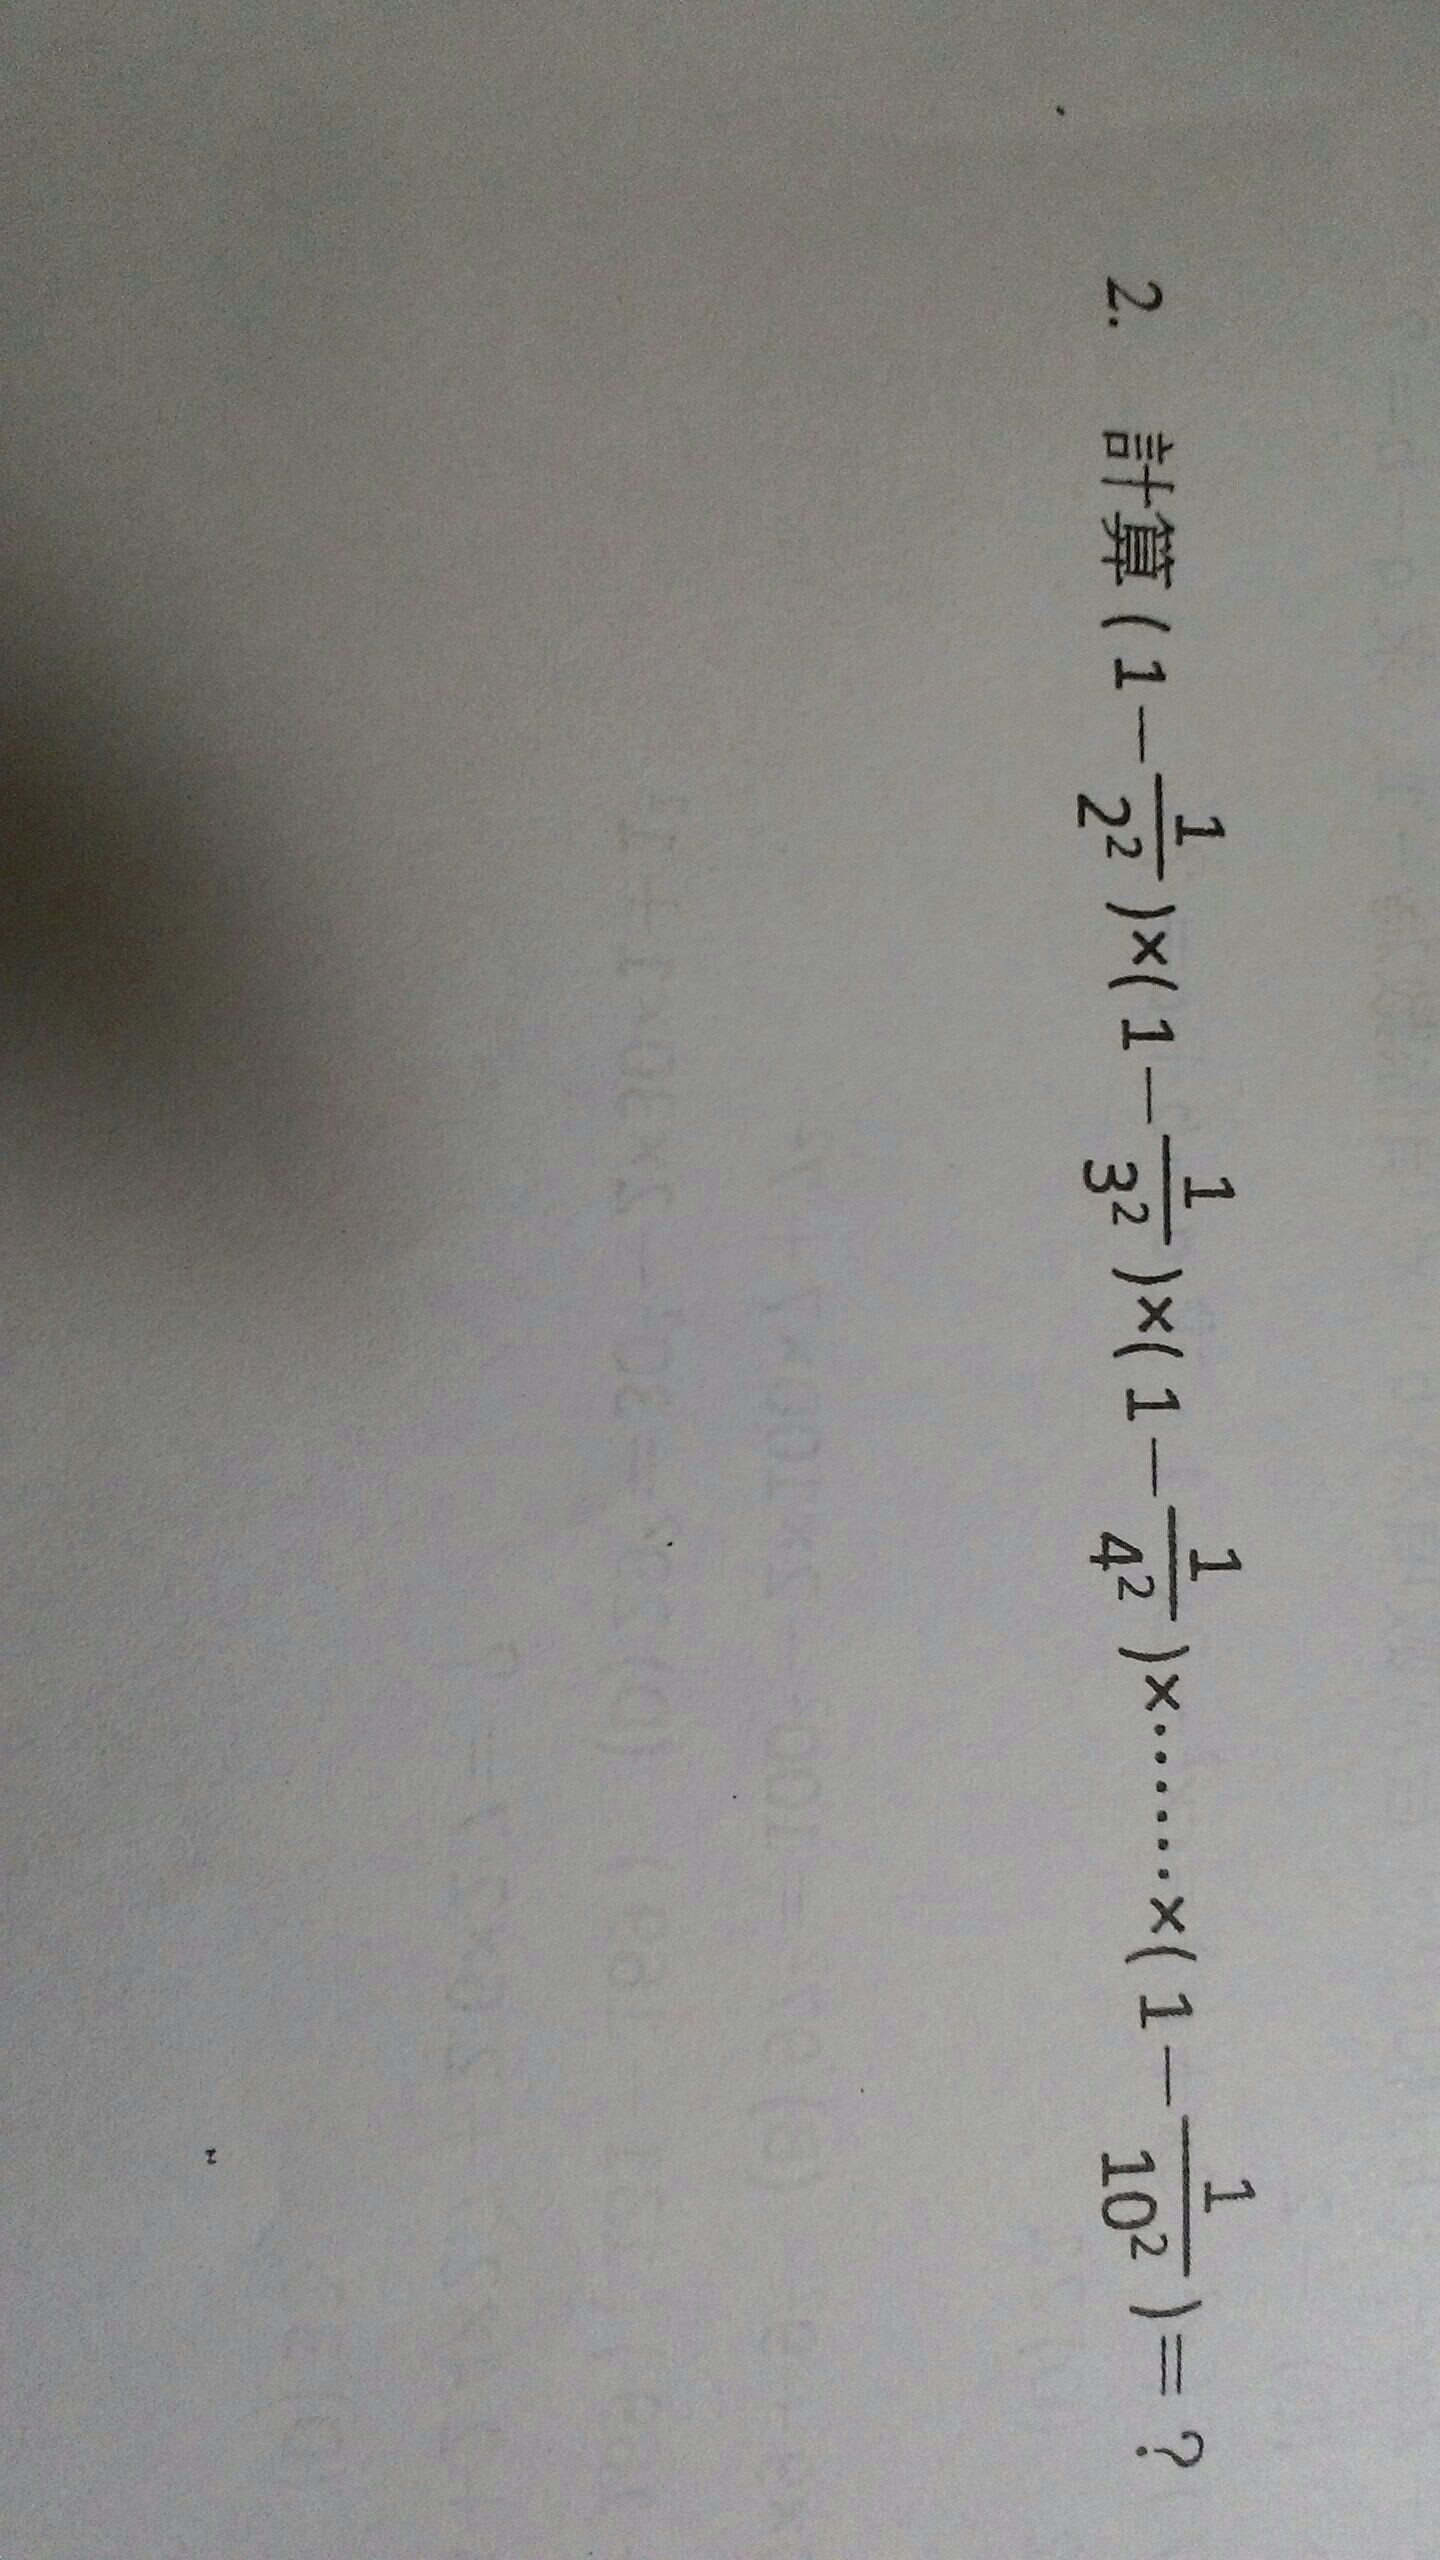 2. 計算(1-\frac{1}{2²})×(1-\frac{1}{3²})×(1-\frac{1}{4²})×······×(1-\frac{1}{10²})=?